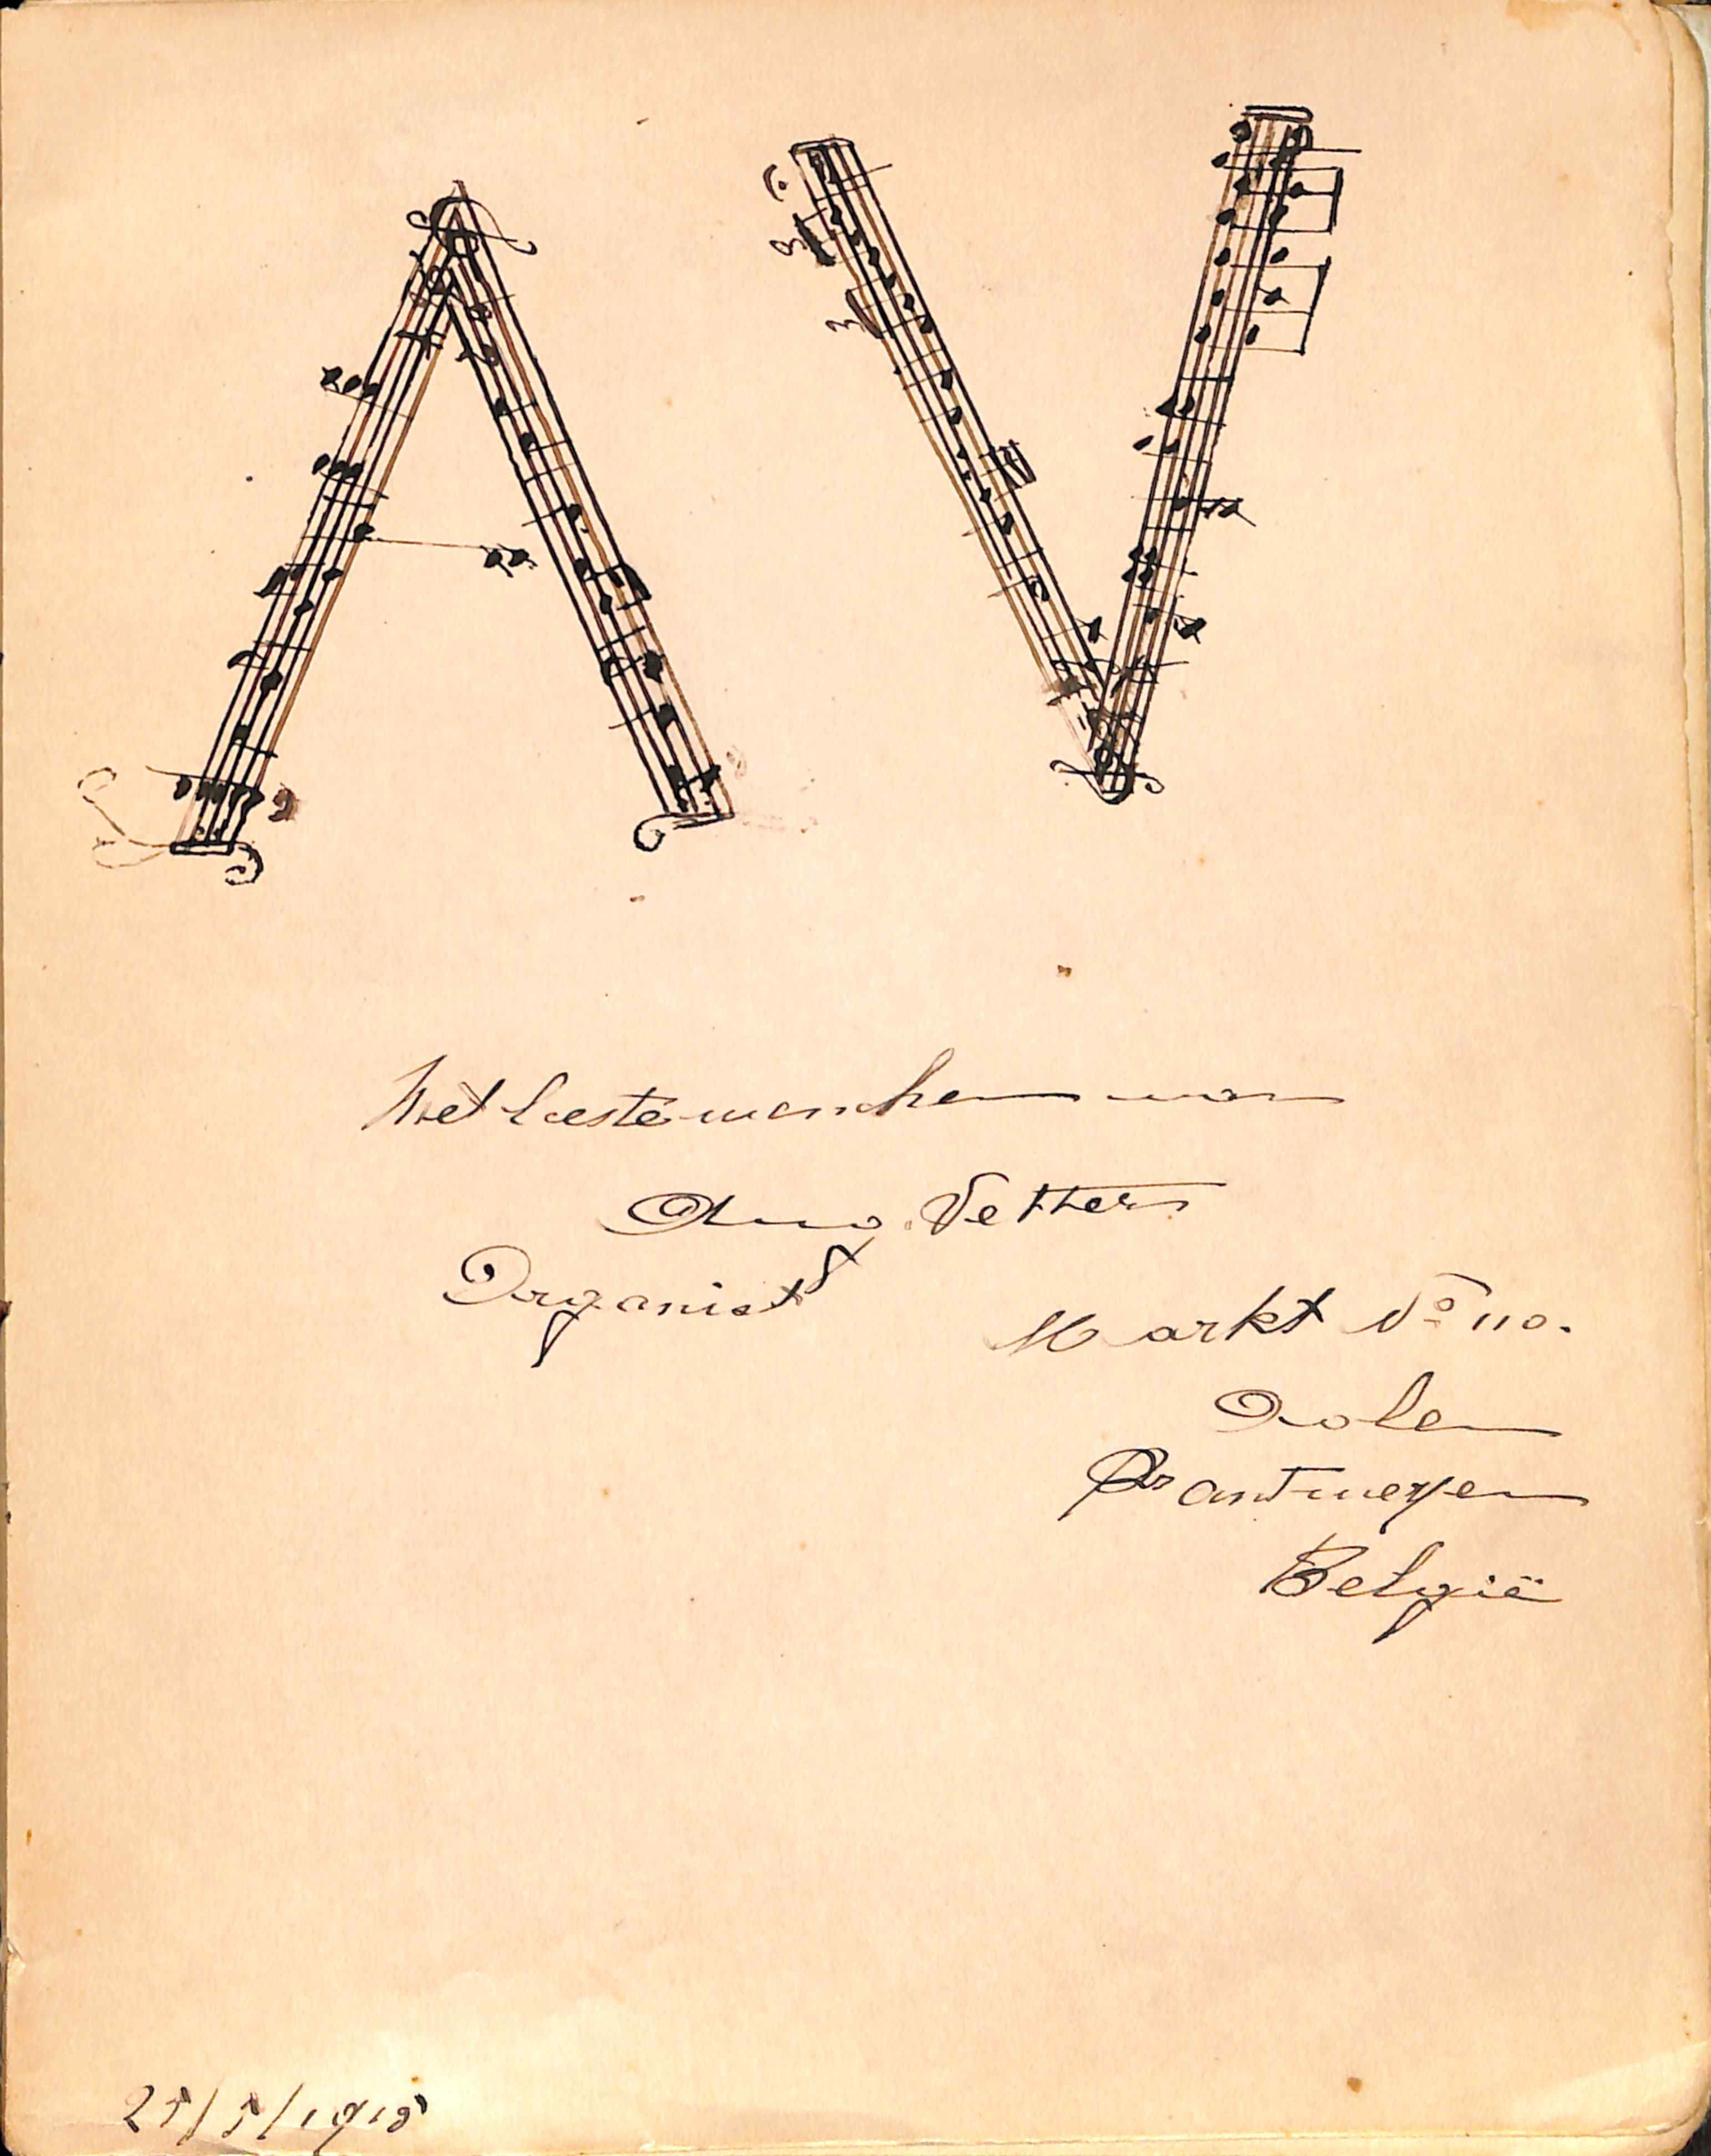 A V
Met beste wenschen van
Aug. Vetters
Organist
Markt No 110.
Oolen
Pr antwerpen
België
25/5/1918